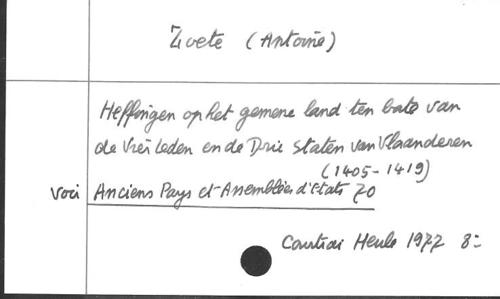 Zoete (Antoine)
Heffingen op het gemene land ten bate van
de Vier Leden en de Drie Staten van Vlaanderen
(1405-1419)
voci Anciens Pays et Assemblées d'Etats 70
Courtrai Heule 1977 8=